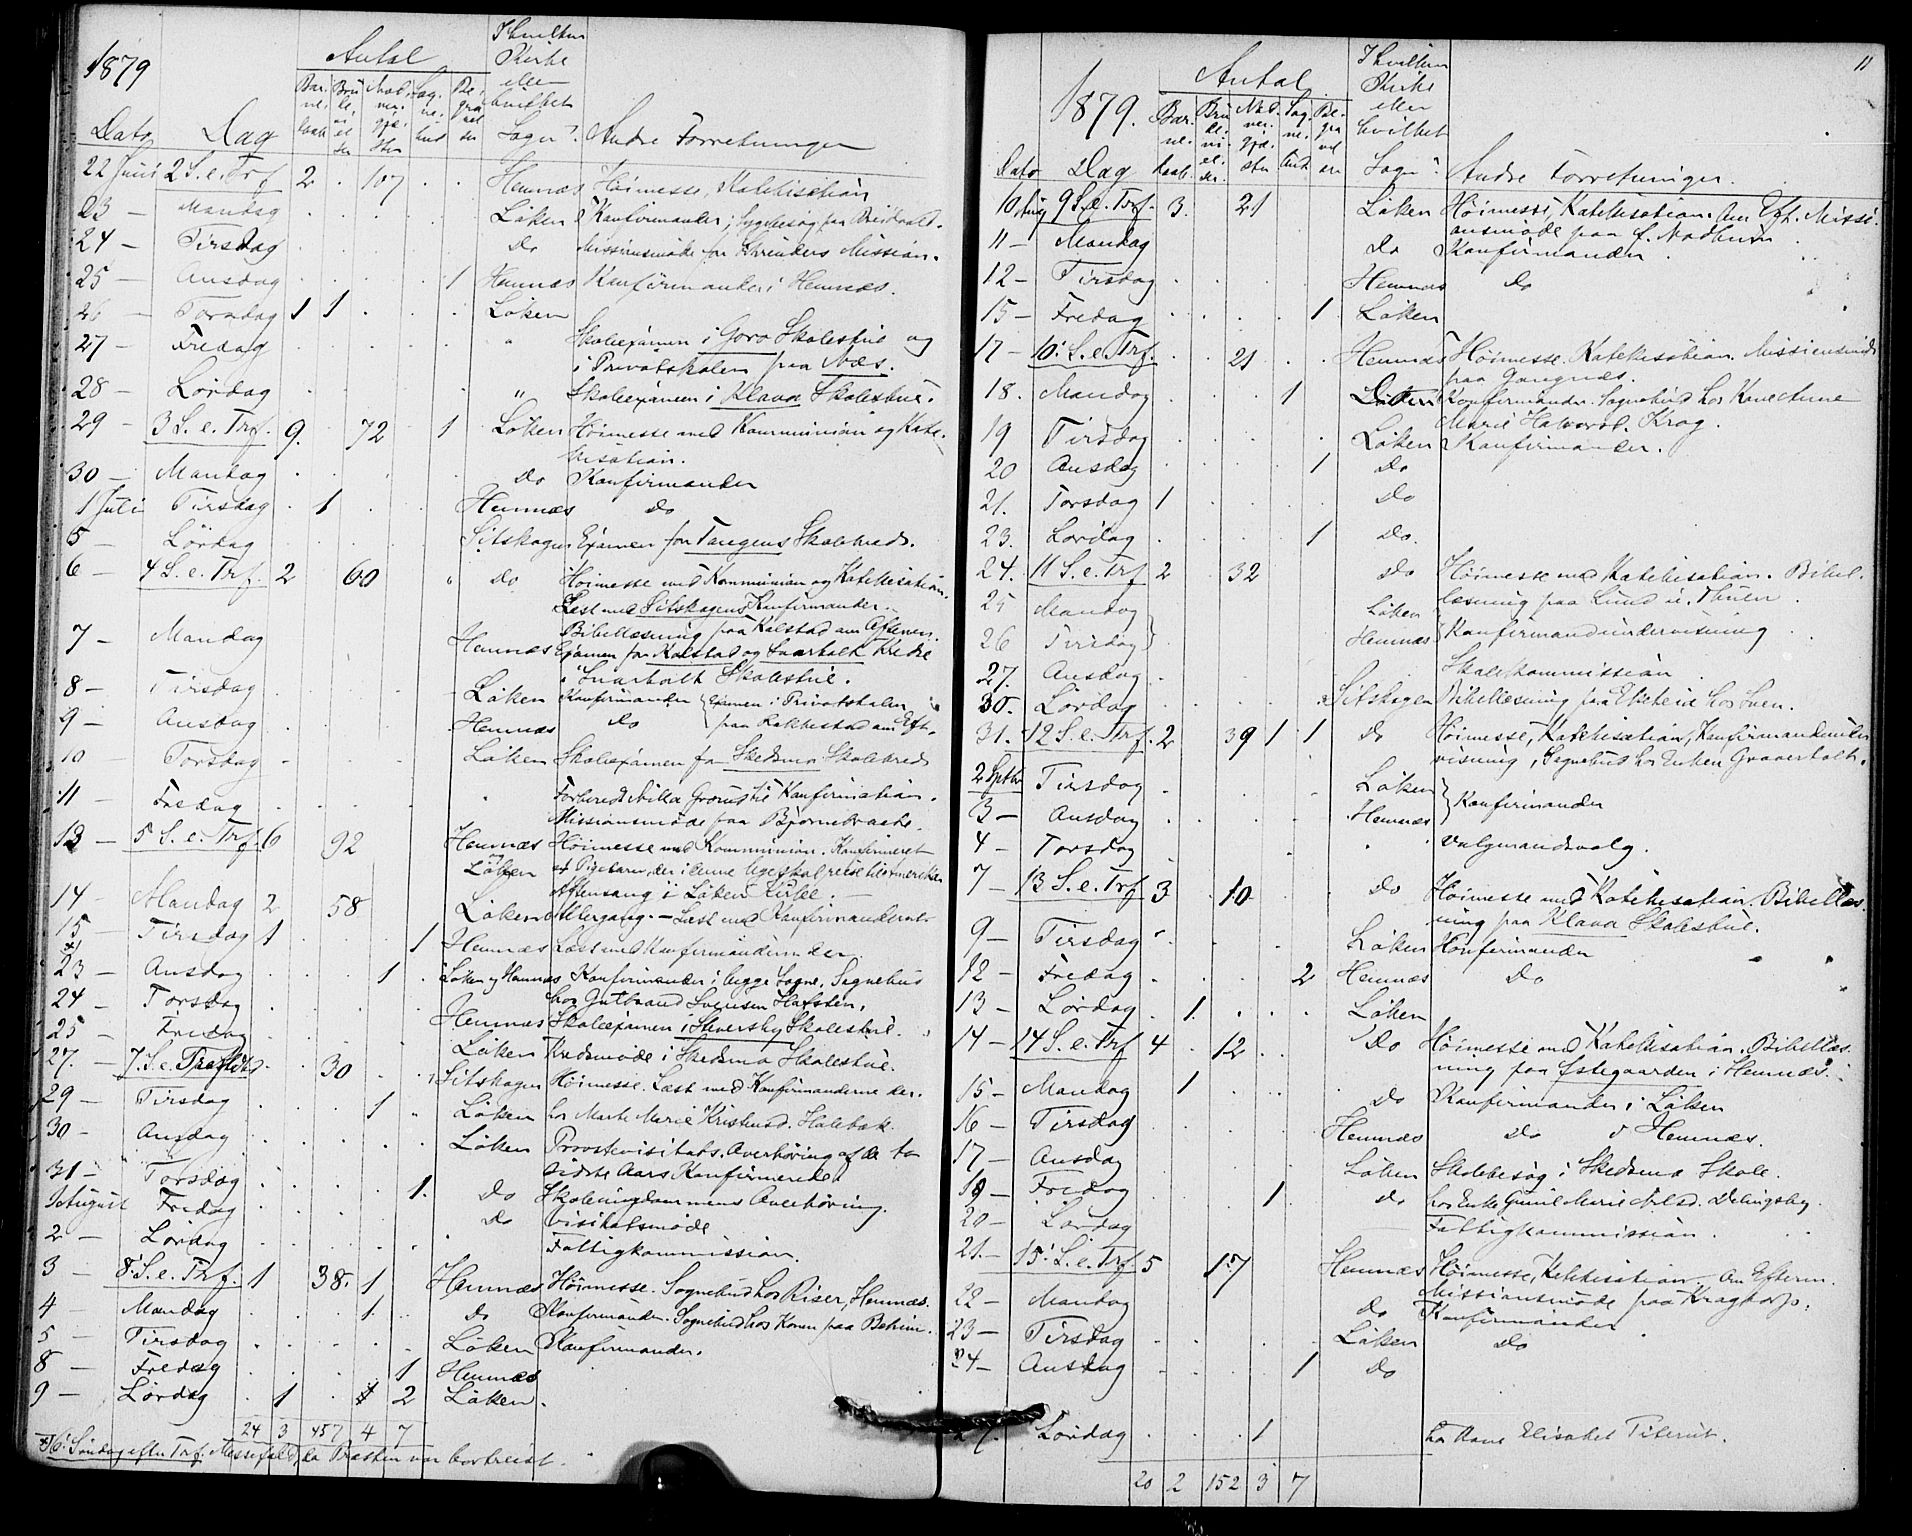 1879
Antal
I hvilken Kirke eller hvilket Sogn?
Dato Dag Andre Forretninger
22 Juni 2 S. e. Trf 2 . 107 . . Hemnæs Höimesse, Katekisation
23 — Mandag Löken Konfirmander; Sygebesøg paa
24 — Tirsdag Do Missionsmøde for Skrinders Mission.
25 — Onsdag 1 Hemnæs Konfirmander i Hemnæs.
26 — Torsdag 1 1 Löken
27 — Fredag " Skoleexamen i Goro Skolestue og
i Privatskolen paa Næs.
28 — Lördag " Skoleexamen i Klava Skolestue.
29 — 3 S. e. Trf. 9. 72 1 Löken Höimesse med Kommunion og Kate-
kisation.
30 — Mandag Do Konfirmander
1 Juli Tirsdag 1 Hemnæs Do
5 — Lördag Sitskogen Examen for Tangens Skolekreds.
6 — 4 S. e. Trf. 2 60 " Do Höimesse med Kommunion og Katekisation.
Læst med Sitskogens Konfirmander.
Bibellæsning paa Kolstad om Aftenen.
7 — Mandag Hemnæs Examen for Kolstad og Svarholt Kredse
i Svarholt Skolestue.
8 — Tirsdag Löken Konfirmander Examen i Privatskolen
9 — Onsdag Hemnæs Do paa Rakkestad om Eft.
10 — Torsdag Löken Skoleexamen fo Skedsmo Skolekreds
11 — Fredag " Konfirmation.
Missionsmøde paa
13 — 5 S. e. Trf. 6 92 Hemnæs Höimesse med Kommunion. Konfirmeret
Löken
Aftensang i Löken Kirke.
14 — Mandag 2 58 Löken Altergang. — Læst med Konfirmanderne
15 — Tirsdag 1 1 Hemnæs Læst med Konfirmanderne der
23 — Onsdag 1 Löken og Hemnæs Konfirmander i begge Sogne. Sognebud
hos Gulbrand Svensen
24 — Torsdag Hemnæs Skoleexamen i Skolestue.
25 — Fredag Löken Kredsmøde i Skedsmo Skolestue.
27. — 7. S. e. 30 Sitskogen Höimesse. Læst med Konfirmanderne der.
29 — Tirsdag 1 Löken hos Marte Marie Kristensd. Holebæk
30 — Onsdag Löken Provstevisitats. Overhöring af de to
sidste Aars Konfirmerede
31 — Torsdag
1 August Fredag 1. Do Skoleungdommens Overhöring.
2 — Lördag Do Visitatsmöde
Fattigkommission.
3 — 8. S. e. Trf. 1 38. 1 Hemnæs Höimesse. Sognebud hos Riser, Hemnæs.
4 — Mandag 1. Do Konfirmander. Sognebud hos Konen paa
5 — Tirsdag Löken Konfirmander.
8 — Fredag 1 Hemnæs
9 — Lördag 1 2 Löken.
24 3 457 4 7
6' Söndag efter Trf. Messefald, da Præsten var bortreist.
11
1879.
Antal
I hvilken Kirke eller hvilket Sogn?
Dato Dag Andre Forretninger.
10 Aug 9 S. e. Trf. 3. 21 Löken Höimesse, Katekisation. Om Eft. Missi-
onsmøde paa
11 — Mandag Do Konfirmander
12 — Tirsdag Hemnæs Do
15 — Fredag 1 Löken
17 — 10' S. e. Trf. 21 Hemnæs Höimesse. Katekisation. Missionsmøde
paa Gangnæs.
18. Mandag 1 Konfirmander. Sognebud hos Kone Anne
Marie Halvorsd. Krog.
19 Tirsdag Löken Konfirmander.
20 Onsdag 1 Do
21. Torsdag 1 Do
23. Lördag 1 Do.
24. 11 S. e. Trf 2 32 Do Höimesse med Katekisation. Bibel-
læsning paa Lund
25 Mandag Löken
26 Tirsdag Hemnæs Konfirmandundervisning
27. Onsdag Skolekommission
30. Lördag Sitskogen Bibellæsning paa hos Sven.
31. 12 S. e. Trf. 2 39 1 1 Do Höimesse, Katekisation, Konfirmandunder-
visning, Sognebud hos Enken
2 Septbr Tirsdag Löken
3 — Onsdag Hemnæs Konfirmander
4 — Torsdag Valgmandsvalg.
7 — 13 S. e. Trf 3 10 Do Höimesse med Katekisation. Bibellæs-
ning paa Klava Skolestue.
9 — Tirsdag Löken Konfirmander
12 — Fredag 2 Hemnæs Do
13 — Lördag 1 Löken
14 — 14 S. e. Trf 4 12 Do Höimesse med Katekisation. Bibellæs-
ning paa Østegaarden i Hemnæs.
15 — Mandag 1 Do Konfirmander i Löken
16 — Tirsdag Hemnæs Do i Hemnæs.
17 — Onsdag Löken Skolebesøg i Skedsmo Skole.
19 — Fredag 1 Do hos Enke Gunil Marie
20 — Lördag Fattigkommission.
21. — 15' S. e. Trf 5 17 Hemnæs Höimesse, Katekisation — Om Efterm.
Missionsmøde paa Kragtorp.
22 — Mandag Do Konfirmander
23 — Tirsdag Löken Do
24 — Onsdag 1 Do
27. Lördag 1 hos Kone Elisabet
20 2 152 3 7